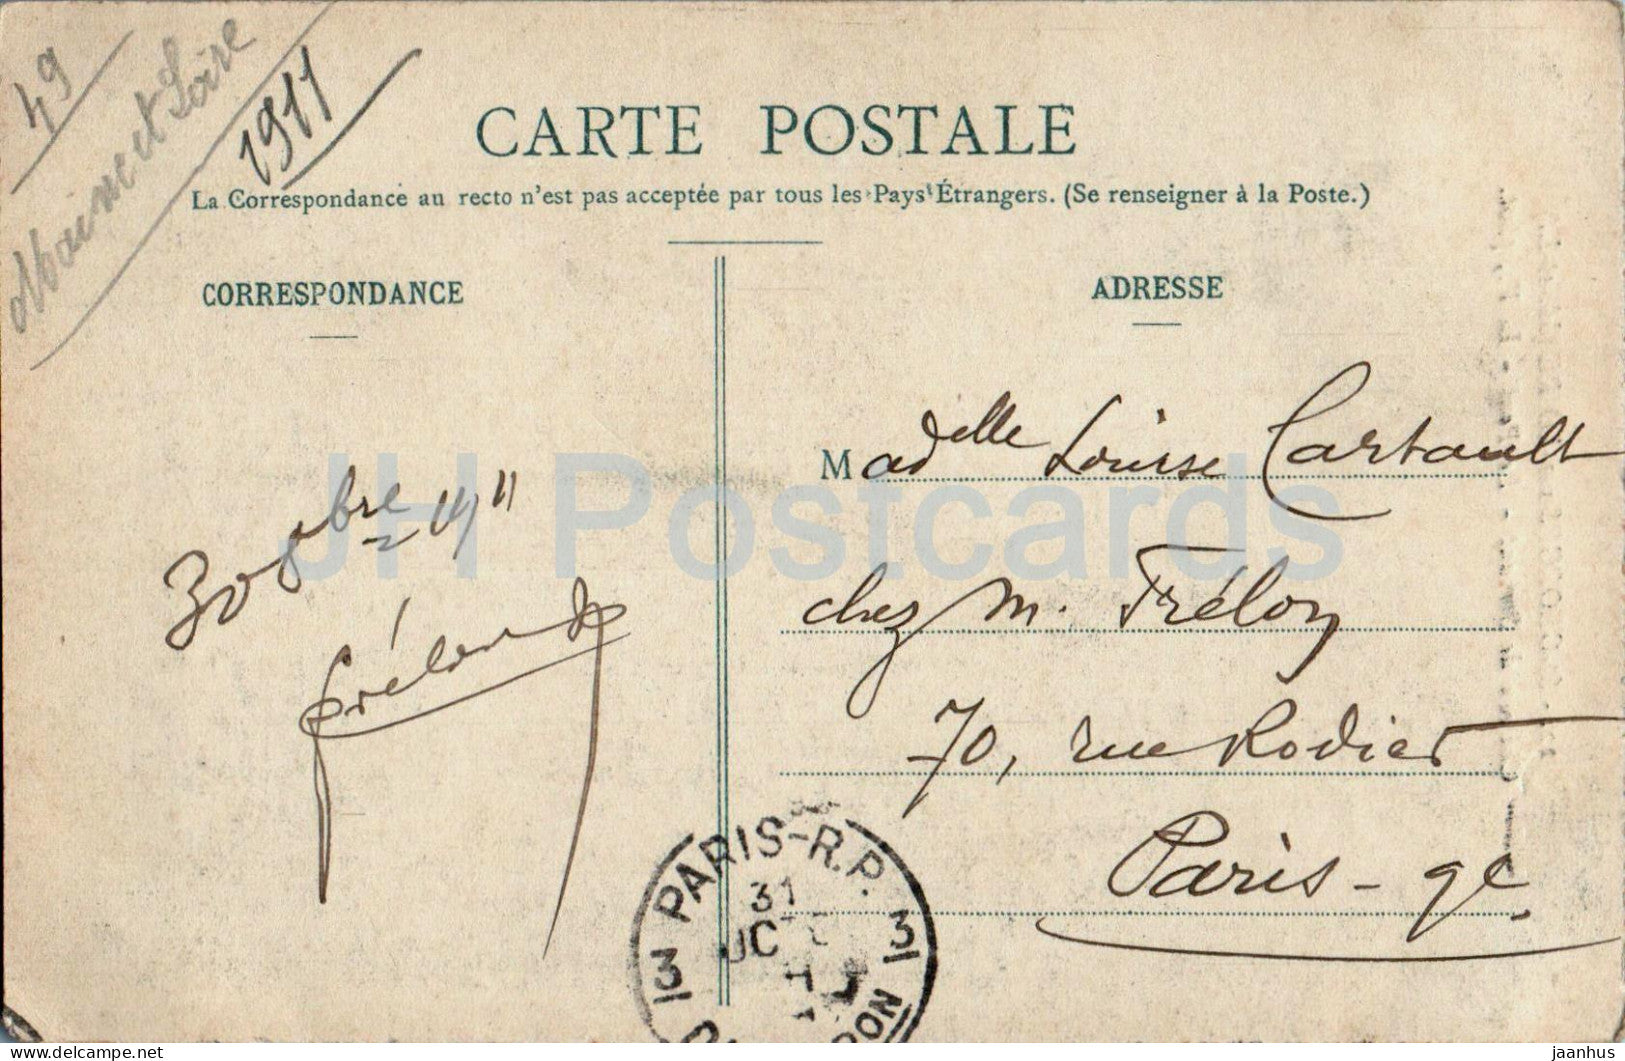 49
Maine et Loire
1911
CARTE POSTALE
La Correspondance au recto n'est pas acceptée par tous les Pays Étrangers. (Se renseigner à la Poste.)
CORRESPONDANCE
ADRESSE
Madelle Louise Cartault
chez M. Frélon
70, rue Rodier
Paris - 9e
30 8bre 1911
JH Postcards
PARIS-R.P.
31
3
3
jaanhus